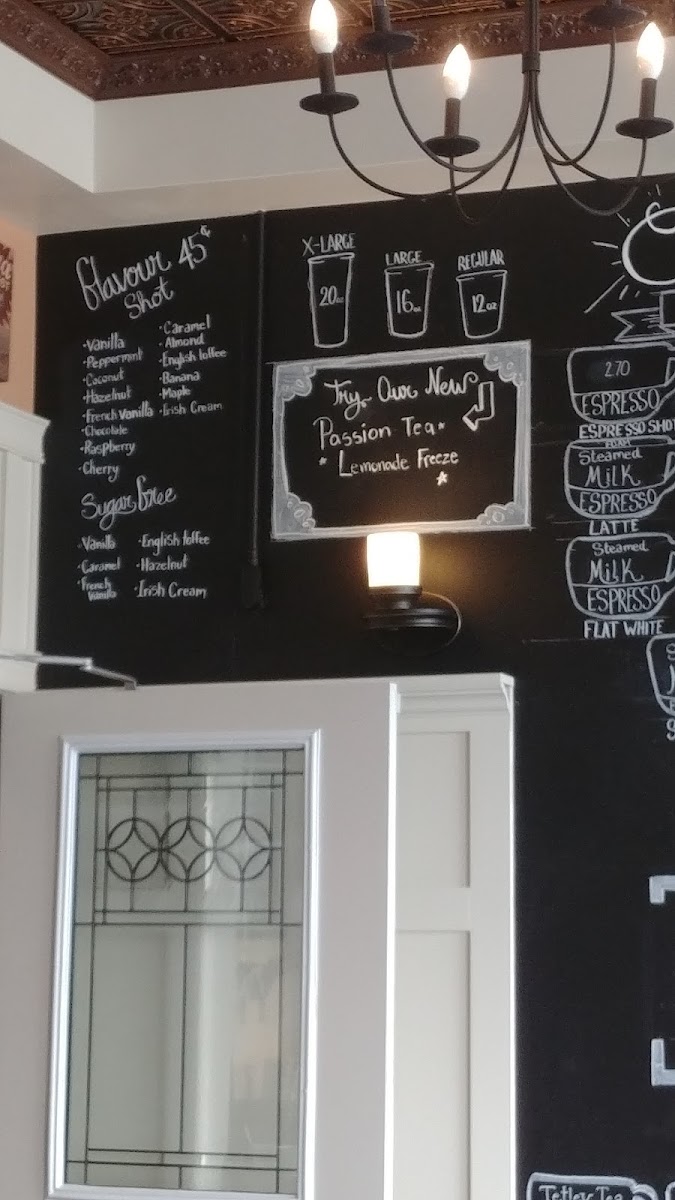 Flavour 45¢
Shot
·Vanilla
·Peppermint
·Coconut
·Hazelnut
·French Vanilla
·Chocolate
·Raspberry
·Cherry
·Caramel
·Almond
·English toffee
·Banana
·Maple
·Irish Cream
Sugar free
·Vanilla
·Caramel
·French
Vanilla
·English toffee
·Hazelnut
·Irish Cream
X-LARGE
20oz
LARGE
16oz
REGULAR
12oz
Try Our New
Passion Tea
Lemonade Freeze
2.70
ESPRESSO
ESPRESSO SHOT
FOAM
Steamed
MiLK
ESPRESSO
LATTE
Steamed
MiLK
ESPRESSO
FLAT WHITE
Tetley Tea